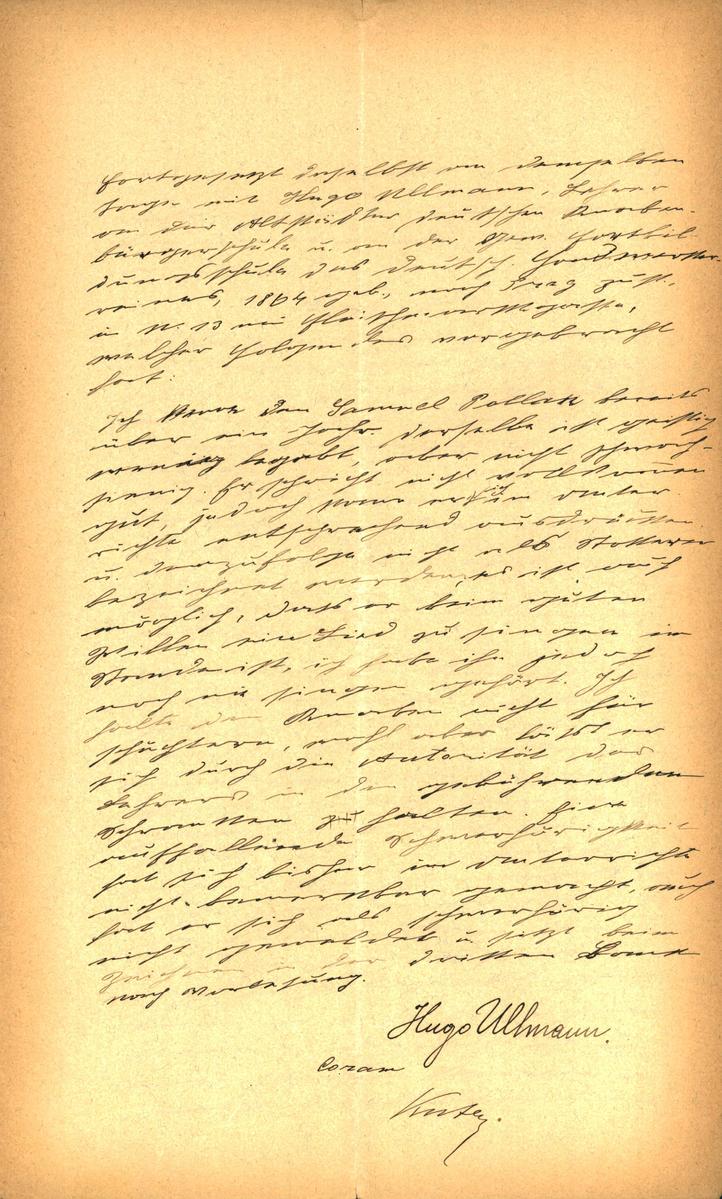 Fortgesetzt daselbst an demselben
Tage mit Hugo Ullmann, Lehrer
an der Altstädter deutschen Knaben-
bürgerschule u. an der Gew. Fortbil-
dungsschule des deutsch. Handwerker-
vereines, 1864 geb., nach Prag zust.,
in N. 13 
welcher Folgendes vorgebracht
hat:
Ich kenne den Samuel Pollak bereits
über ein Jahr. Derselbe ist geistig
wenig begabt, aber nicht schwach-
sinnig. Er spricht nicht vollkommen
gut, jedoch kann er sich im Unter-
richte entsprechend ausdrücken
u. demzufolge nicht als Stotterer
bezeichnet werden, es ist auch
möglich, dass er beim guten
Willen ein Lied zu singen im
Stande ist, ich habe ihn jedoch
noch nie singen gehört. Ich
halte den Knaben nicht für
schüchtern, wohl aber lässt er
sich durch die Autorität des
Lehrers in den gebührenden
Schranken halten. Eine
auffallende Schwerhörigkeit
hat sich bisher im Unterrichte
nicht bemerkbar gemacht, auch
hat er sich als schwerhörig
nicht gemeldet u. sitzt beim
Zeichnen in der dritten Bank
nach Vorlesung.
Hugo Ullmann.
Coram